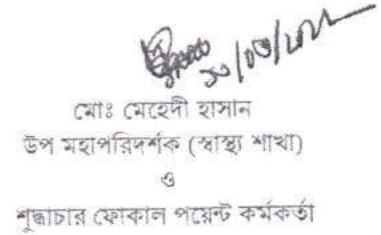 মোঃ মেহেদী হাসান
উপ মহাপরিদর্শক (স্বাস্থ্য শাখা)
ও
শুদ্ধাচার ফোকাল পয়েন্ট কর্মকর্তা